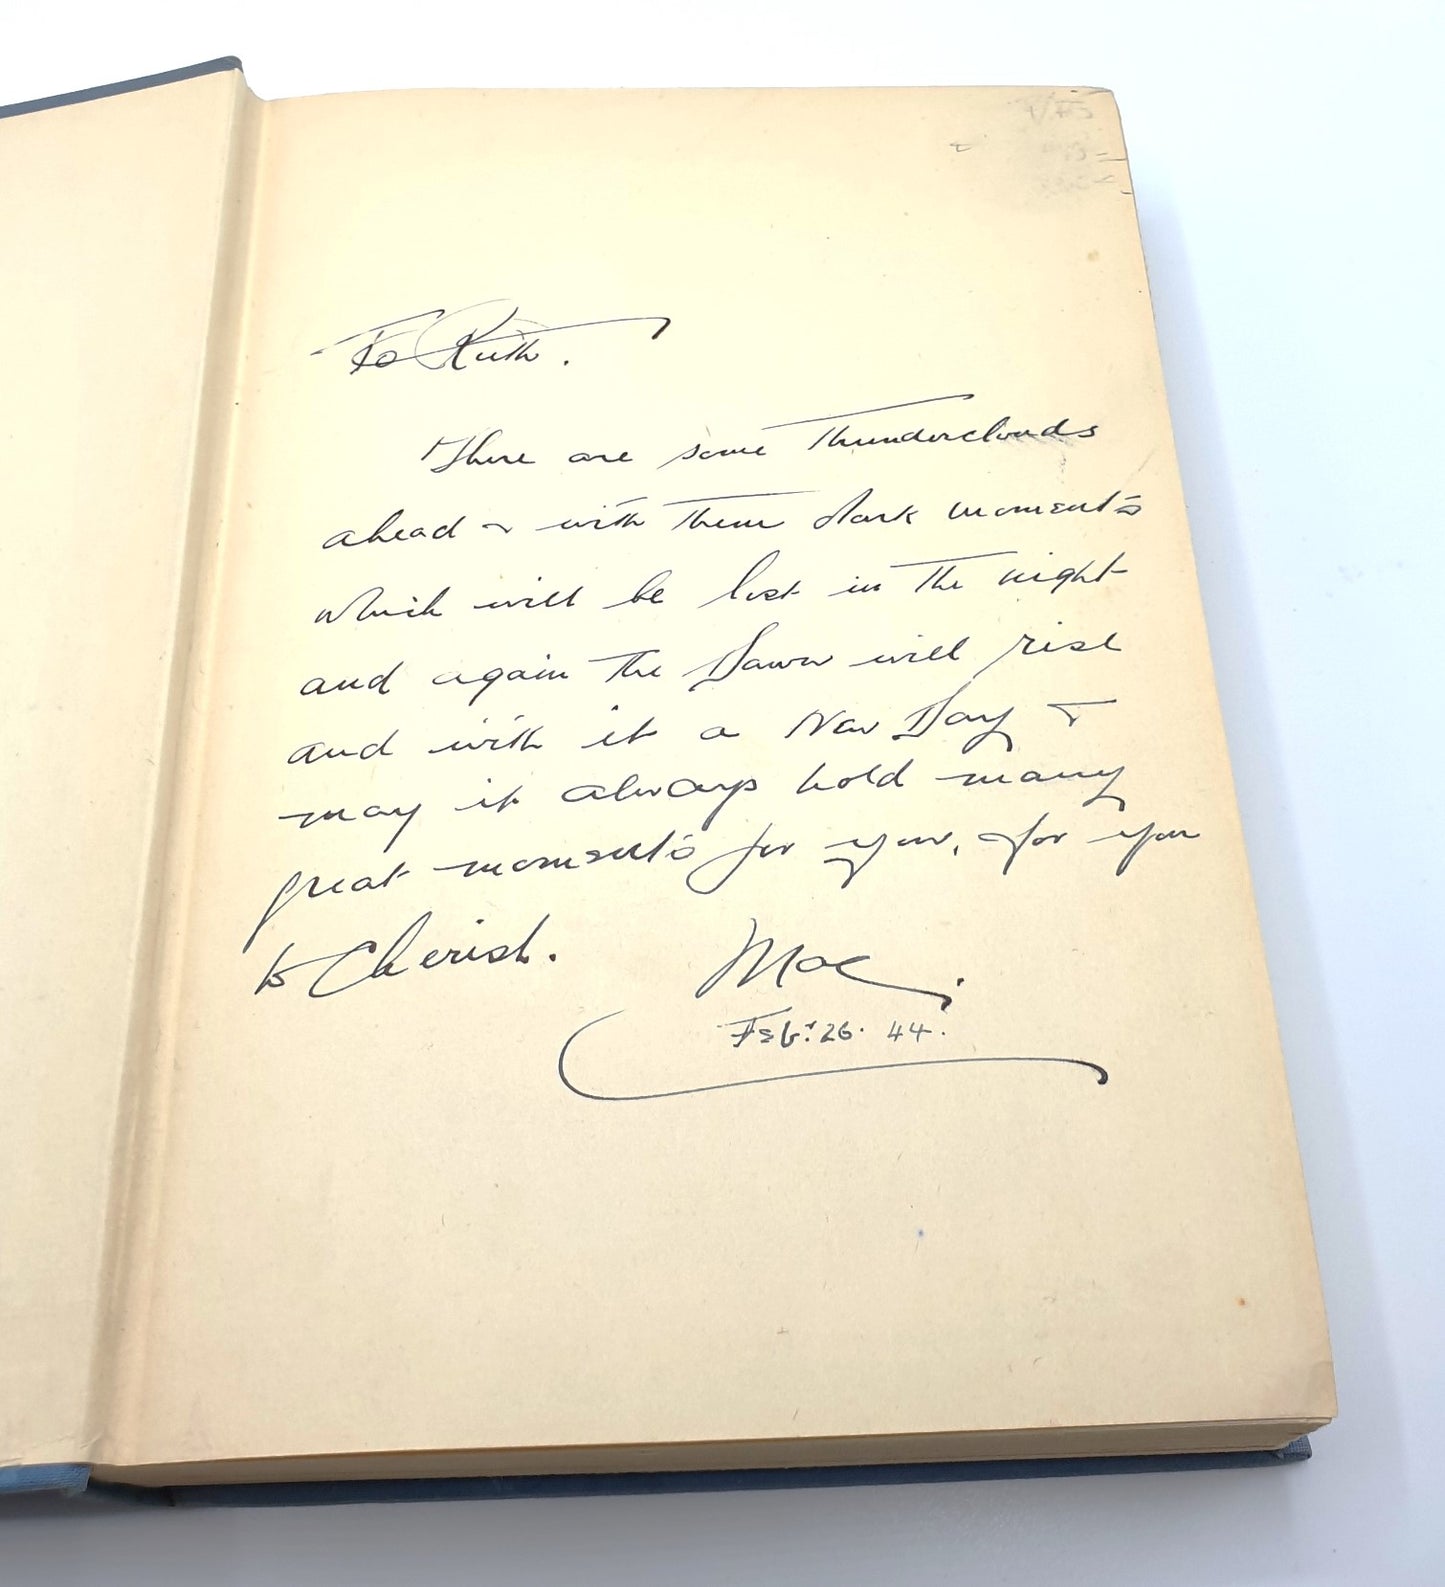 To Ruth.
There are some Thunderclouds
ahead & with them dark moments
which will be lost in the night
and again the Dawn will rise
and with it a New Day &
may it always hold many
great moments for you, for you
to Cherish. Mac.
Feb. 26. 44.